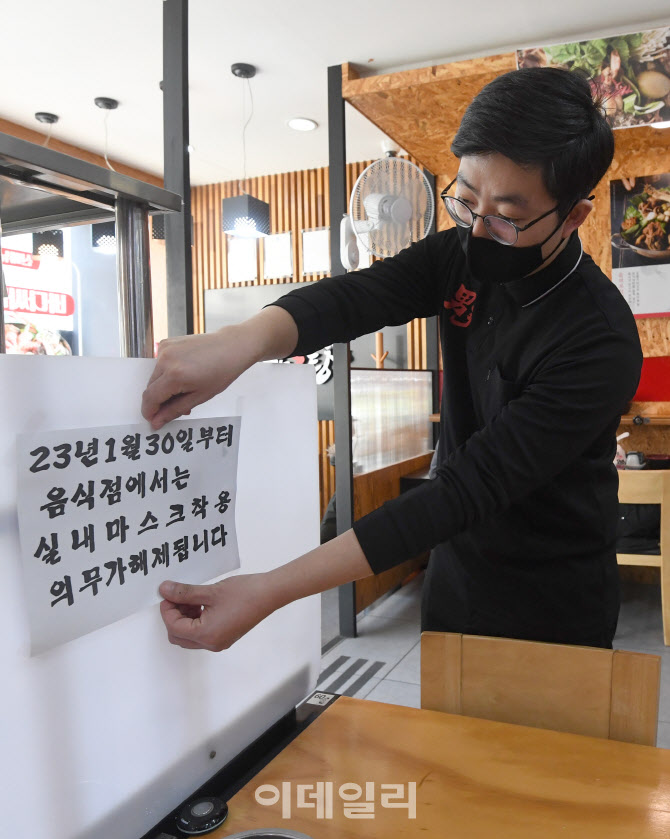 23년 1월 30일부터
음식점에서는
실내마스크착용
의무가해제됩니다
이데일리